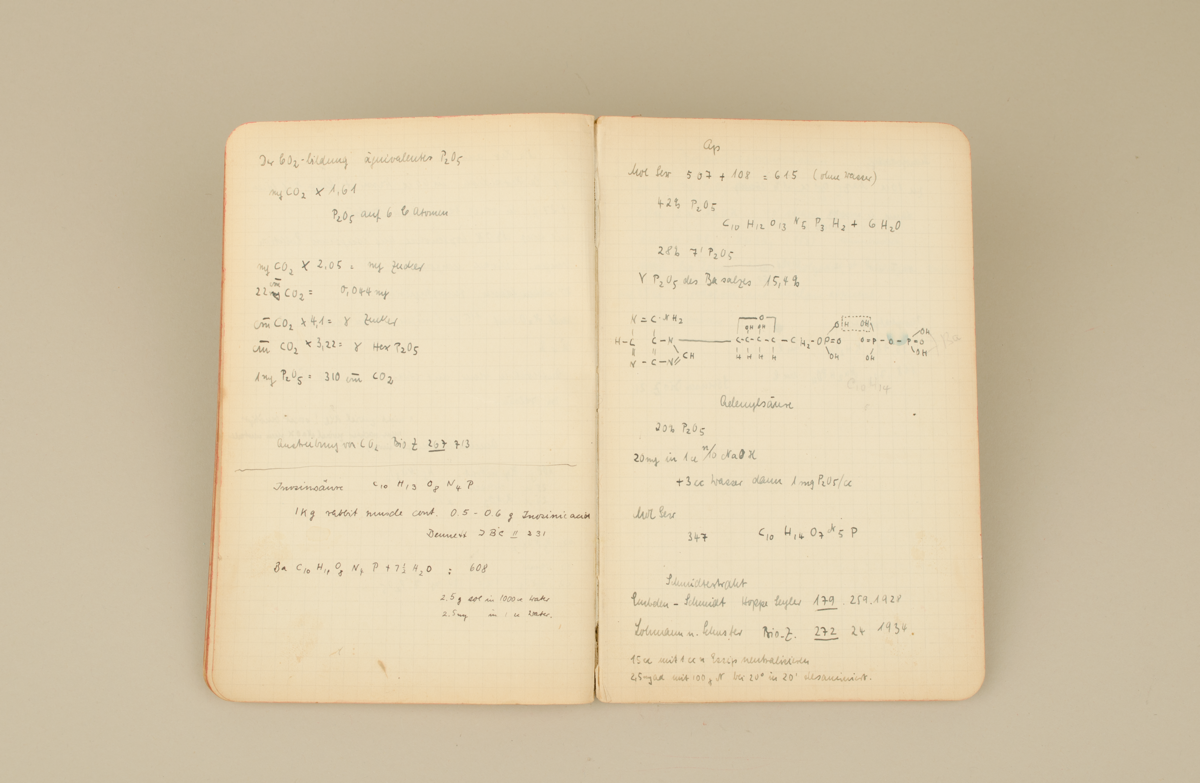 Der CO2-bildung äquivalentes P2O5
mg CO2 × 1,61
P2O5 auf 6 C Atomen
mg CO2 × 2,05 = mg Zucker
CO2 = 0,044 mg
cm CO2 × 4,1 = γ Zucker
cm CO2 × 3,22 = γ Hex P2O5
1 mg P2O5 = 310 cm CO2
Austreibung von CO2 Bio Z 207 713
Inosinsäure C10 H13 O8 N4 P
1 Kg rabbit muscle cont. 0.5 - 0.6 g Inosinic acid
JBC II 231
Ba C10 H11 O8 N4 P + 7½ H2O : 608
2.5 g sol in 1000 cc water
2.5 mg in 1 cc water.
Ap
Mol Gew 507 + 108 = 615 (ohne Wasser)
42% P2O5
C10 H12 O13 N5 P3 H2 + 6 H2O
28% 7' P2O5
P2O5 des Basalzes 15,4%
N = C-NH2
H-C C-N
CH
N - C - N
O
OH OH
C-C-C-C - CH2-OP=O
H H H H
O H OH
OH
O=P-O-P=O
OH
OH
OH
Adenylsäure
20% P2O5
20 mg in 1 cc n/10 NaOH
+3 cc Wasser dann 1 mg P2O5/cc
Mol Gew
347 C10 H14 O7 N5 P
Schmidtextrakt
Embden - Schmidt Hoppe Seyler 179. 259. 1928
Lohmann u. Schuster Bio. Z. 272 24 1934.
15 cc mit 1 cc n neutralisieren
mit 100 γ N bei 20° in 20' desaminiert.